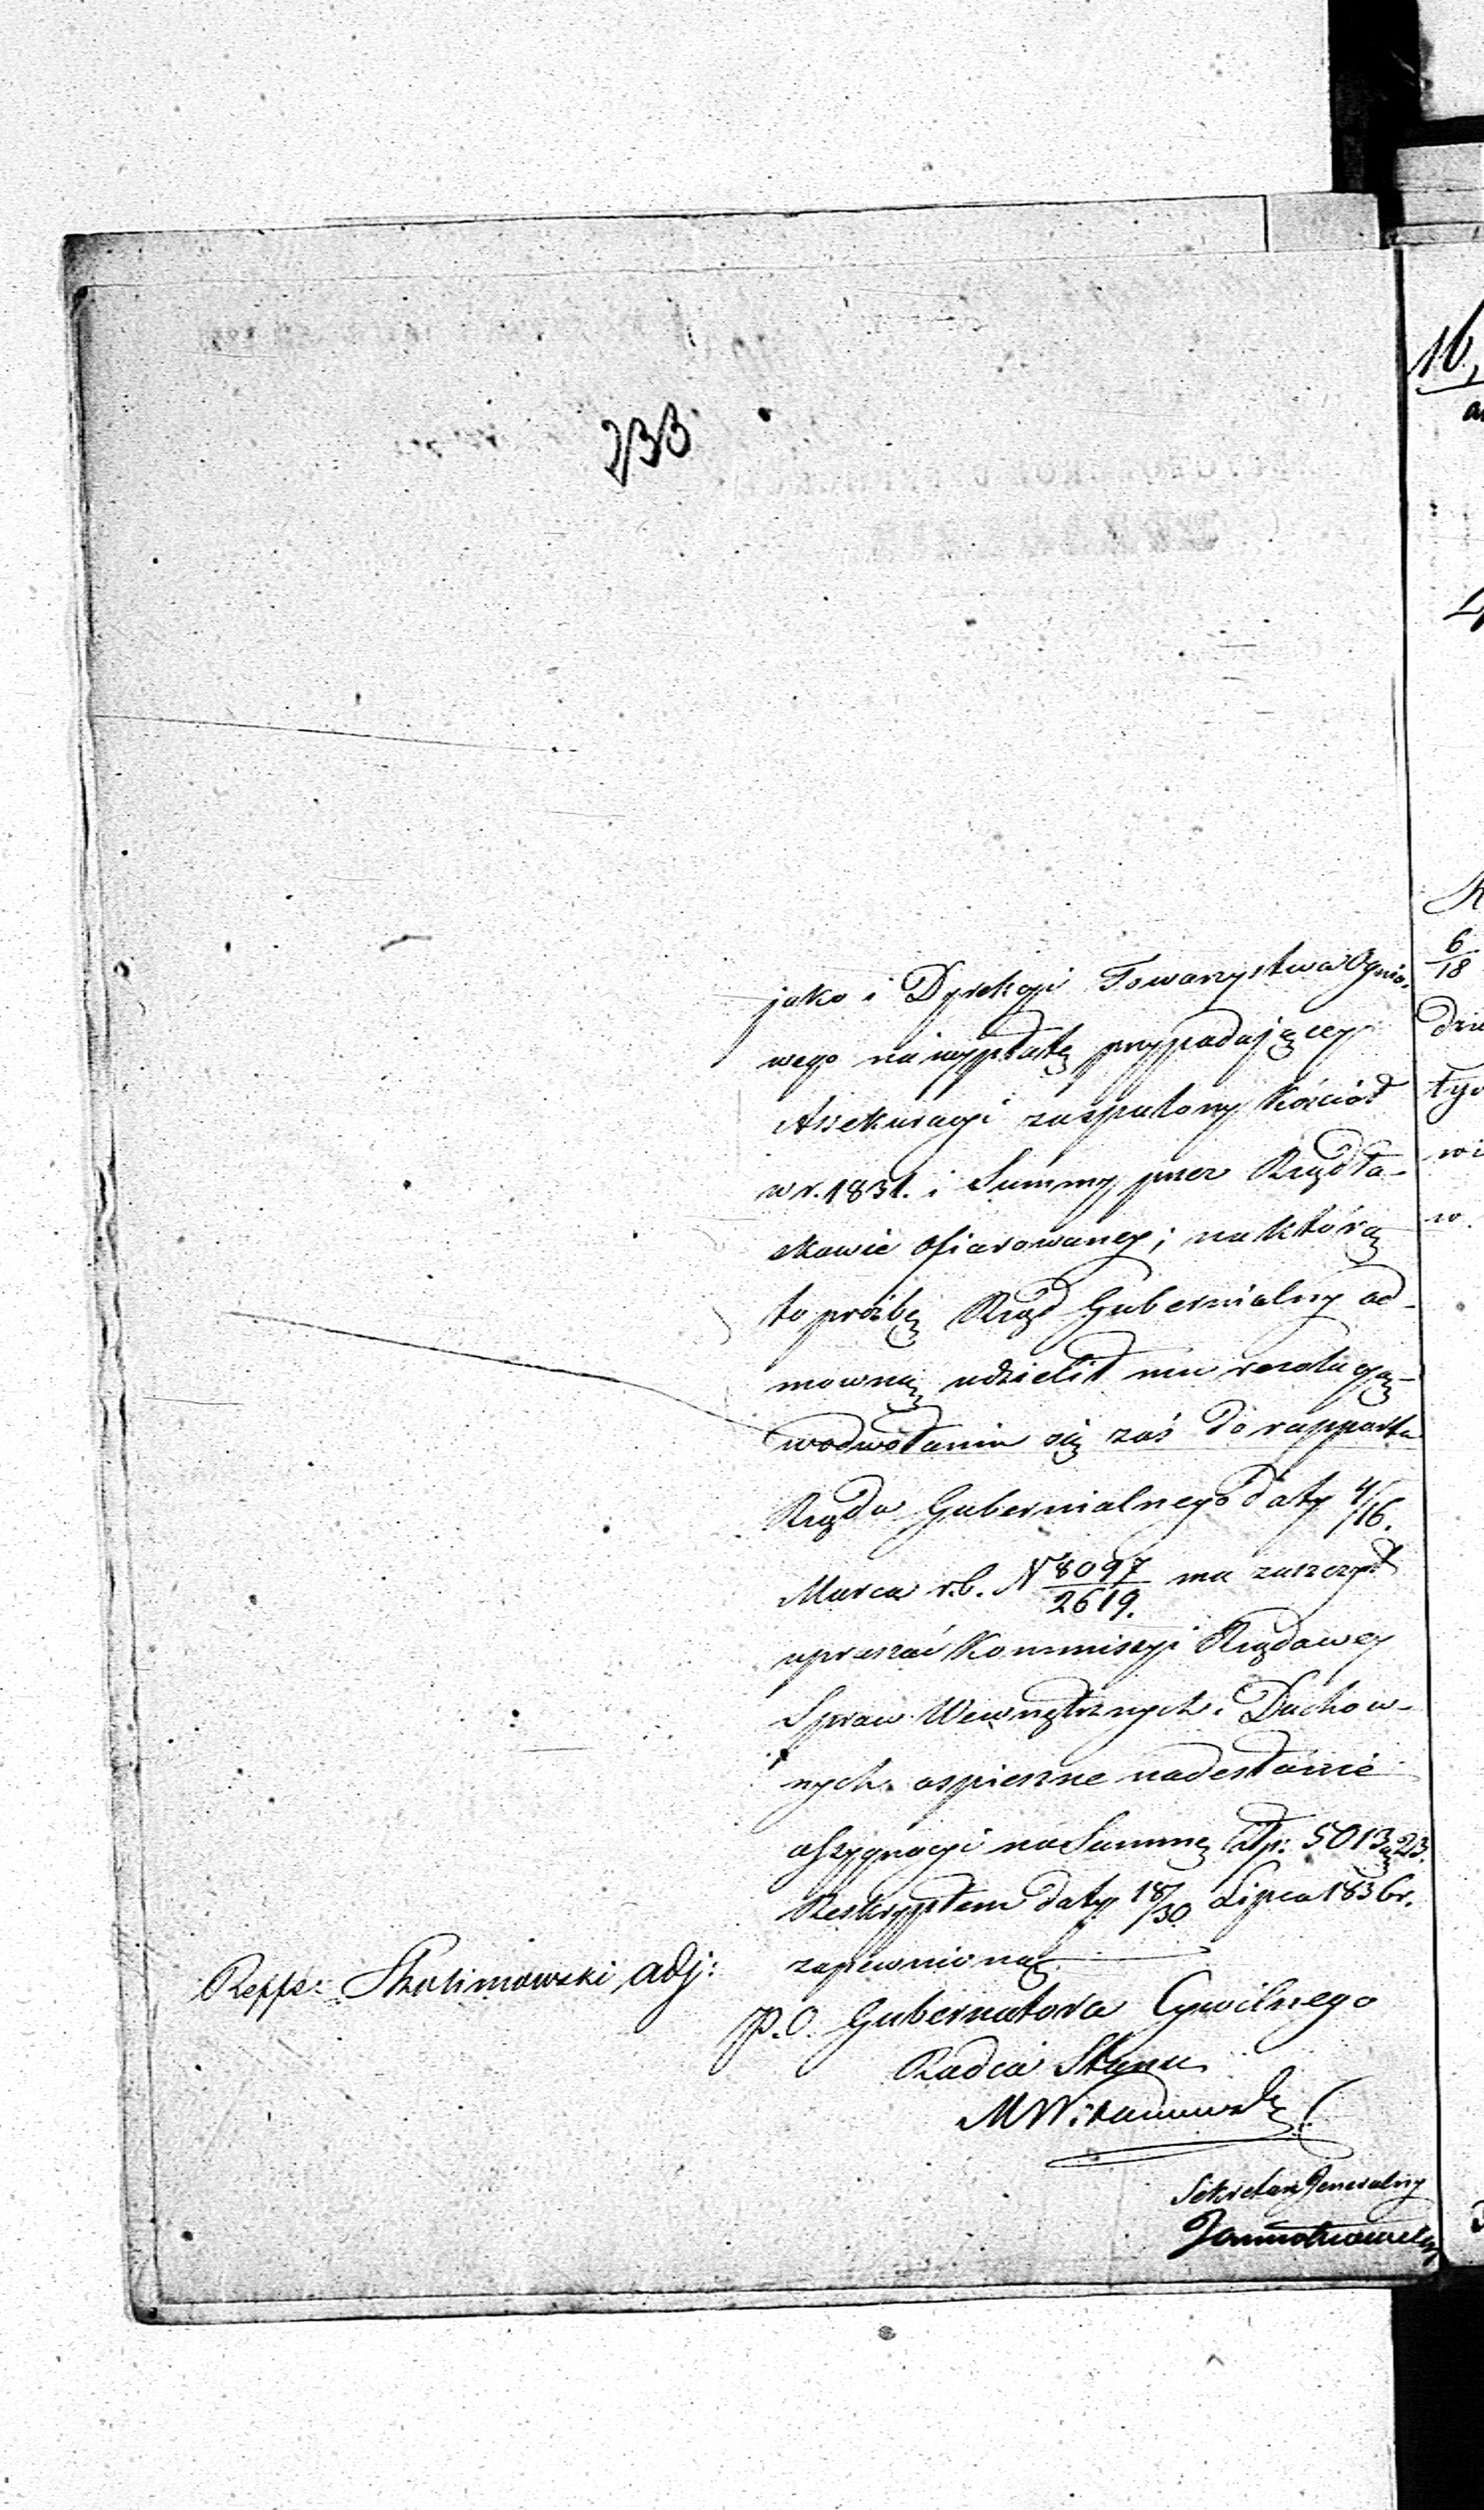 233
jako i Dyrekcyi Towarzystwa Ognio-
wego na wypłatę przypadającey
Assekuracyi za spalony Kościół
w r. 1831. i Summy przez Rząd ła-
skawie ofiarowaney; na którą
to prożbę Rząd Gubernialny od-
mowną udzielił mu rezolucyą -
w odwołaniu się zaś do rapportu
Rządu Gubernialnego daty 4/16.
Marca r.b. N 8097/2619. ma zaszczyt
upraszać Kommissyi Rządowey
Spraw Wewnętrznych i Duchow-
nych o spieszne nadesłanie
assygnacyi na Summę Złtp: 5013 gr 23.
Reskryptem daty 18/30 Lipca 1836 r.
zapewnioną.
Reffe: Skolimowski adj:
P.O. Gubernatora Cywilnego
Radca Stanu
Sekretarz Generalny
16,
6/18